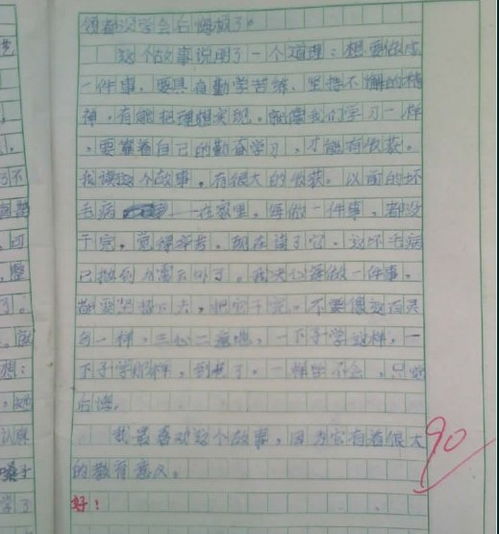 领都没学会后悔极了。
这个故事说明了一个道理:想要做成
一件事,要具有勤学苦练、坚持不懈的精
神,才能把理想实现。就像我们学习一样
,要靠着自己的勤奋学习,才能有收获。
我读这个故事,有很大的收获。以前的坏
毛病 一在家里,每做一件事,都没
干完,觉得辛苦。现在读了它,这坏毛病
已抛到九霄云外了。我决心每做一件事,
都要坚持下去,把它干完。不要像这百灵
鸟一样,三心二意地,一下子学这样,一
下子学那样,到老了,一样也不会,只好
后悔。
我最喜欢这个故事,因为它有着很大
的教育意义。
90
好!